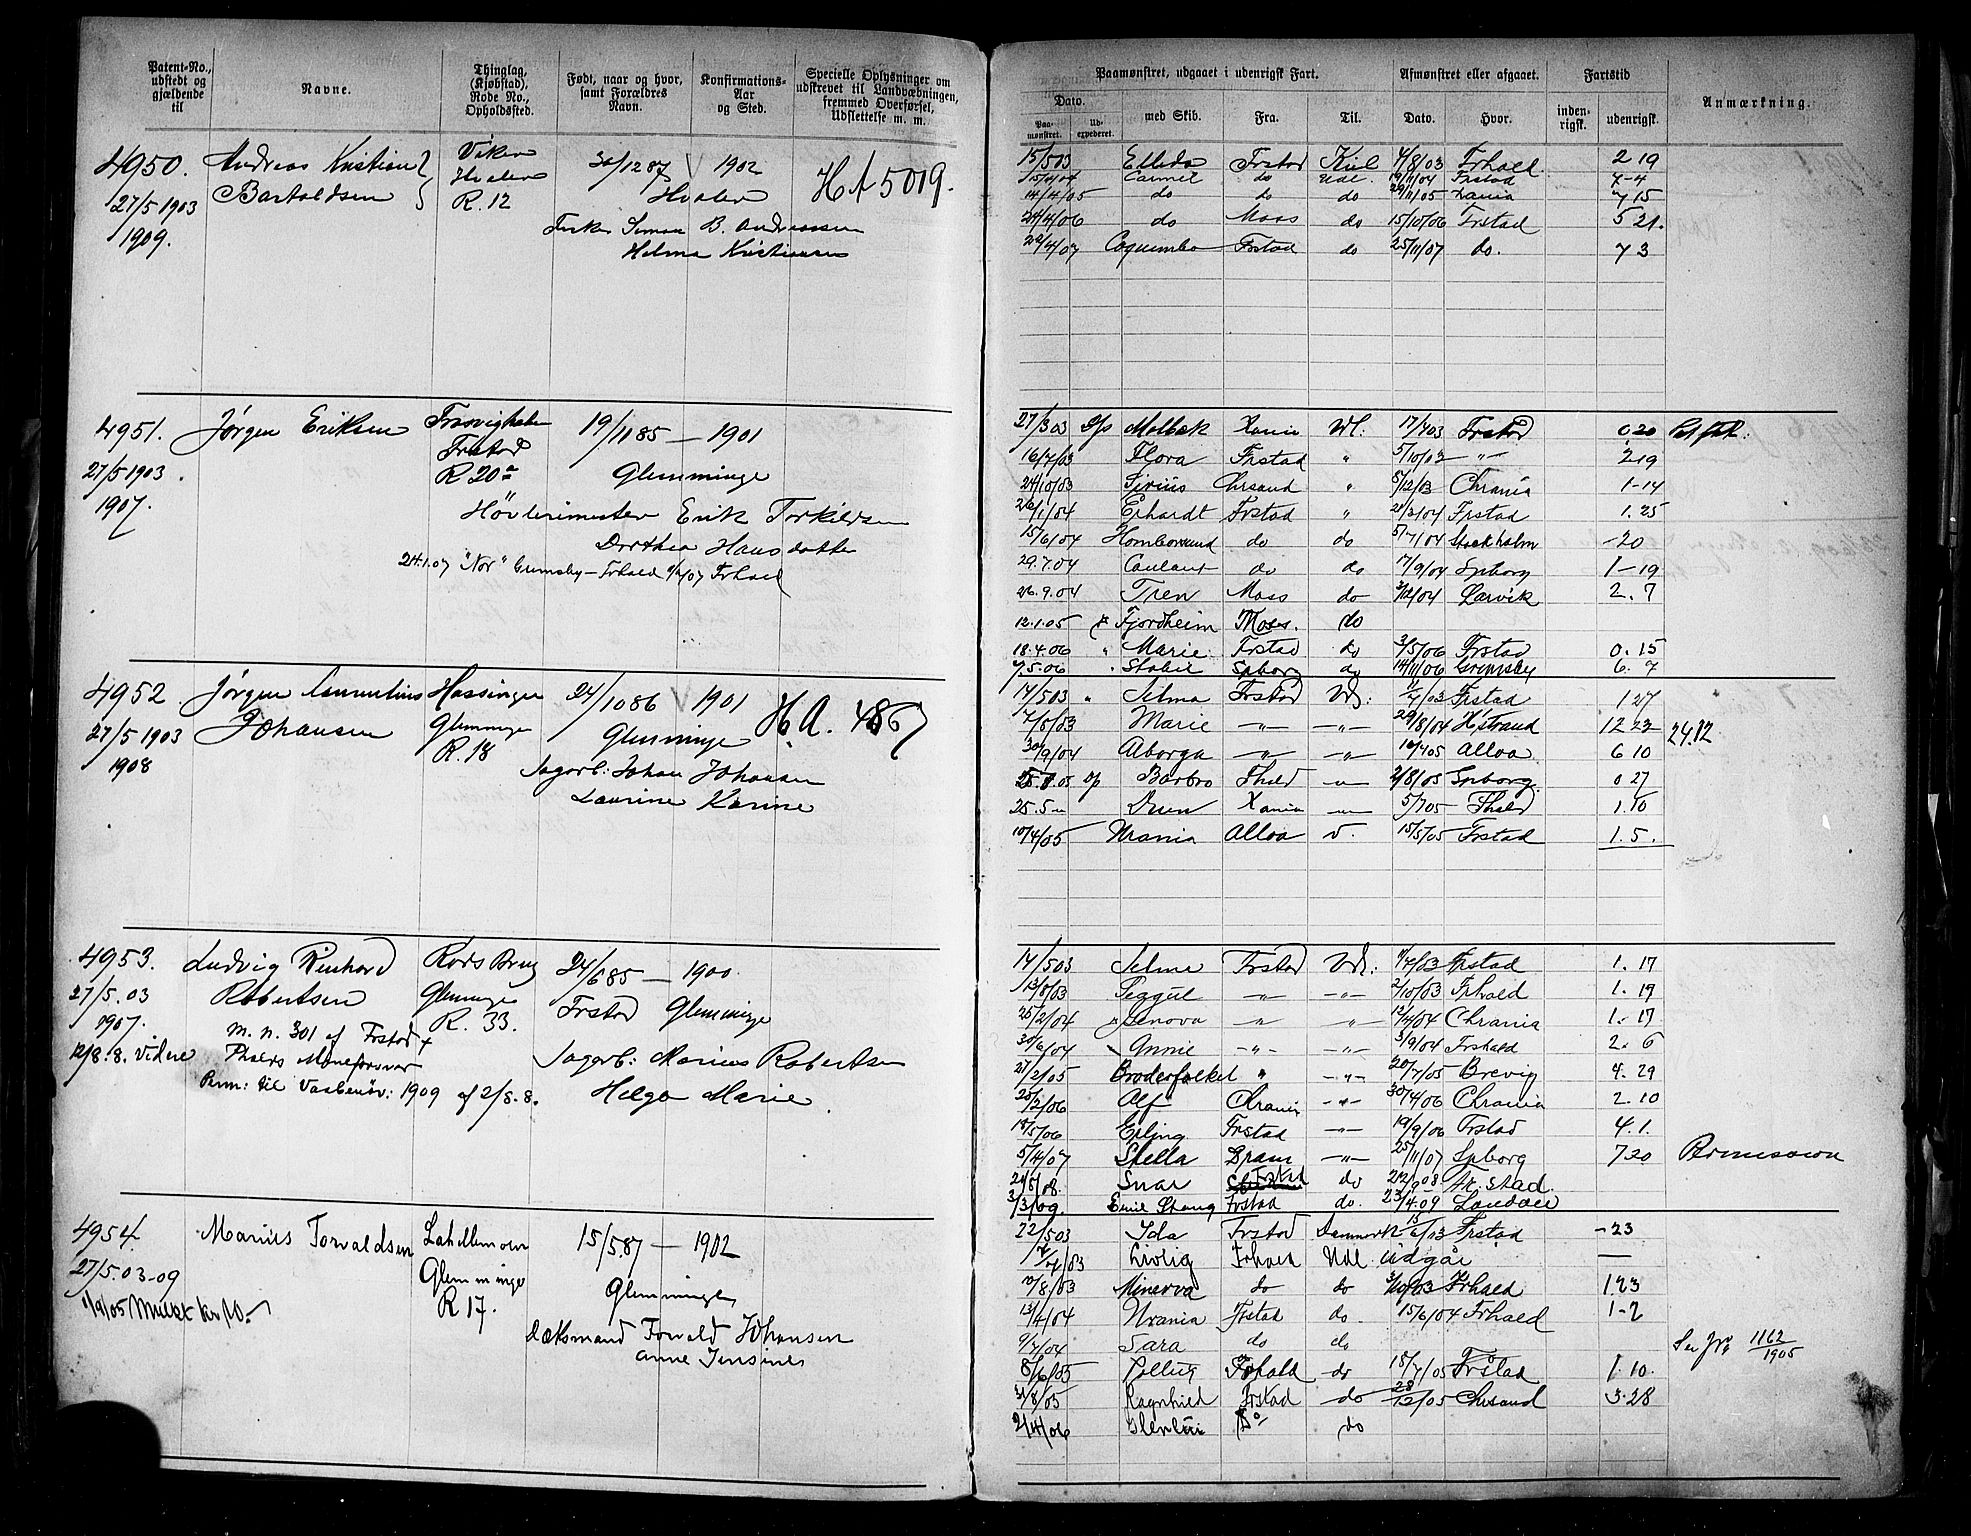 Patent-No., udstedt og gjældende til
Navne.
Thinglag, (Kjøbstad), Rode No., Opholdssted.
Født, naar og hvor, samt Forældres Navn.
Konfirmations-Aar og Sted.
Specielle Oplysninger om udskrevet til Landvæbningen, fremmed Overførsel, Udslettelse m. m.
Paamønstret, udgaaet i udenrigsk Fart.
Afmønstret eller afgaaet.
Fartstid
Anmærkning.
Dato.
Paamønstret.
Udexpederet.
med Skib.
Fra.
Til.
Dato.
Hvor.
indenrigsk.
udenrigsk.
4950. Andreas Kristian
Bartoldsen
27/5 1903
1909.
Hvaler
R. 12
30/12 87 1902
Hvaler
HA 5019.
Simon B. Andreassen
Helma Kristiansen
15/5 03 Frstad Kiel 4/8/03 Frhald 2 19
do do Udl. Frstad 7-4
14/4/05 do do do 29/11/05 7 15
24/4/06 do Moss do 15/10/06 Frstad 5 21.
22/4/07 Coquimbo Frstad do 25/11/07 do. 7 3
4951. Jørgen Eriksen
27/5 1903
1907.
Frstad
R 20a
19/11 85 — 1901
Glemminge
Høvlerimester Erik Torkildsen
Dorthea Hansdatter
24.1.07 "Nor" Grimsby — Frhald Frhald
27/3 03 D/p Molbek Xania Udl: 17/4 03 Frstad 0.20
16/7/03 Flora Frstad " 5/10/03 — " — 2 19
24/10/03 Sirius Chrsand " 8/12/03 Chrania 1-14
26/1/04 Erhardt Frstad " Frstad 1.25
15/6/04 Homborsund do do 5/7/04 Stockholm -20
29.7.04 do do 17/9/04 Spborg 1-19
26.9.04 Tren Moss do Larvik 2.7
12.1.05 Fjordheim Moss. do
18.4.06 " Marie Frstad do 3/5/06 Frstad 0.15
7/5.06 Spborg do 14/11/06 Grimsby 6.7
4952. Jørgen
Johansen
27/5 1903
1908
Hassingen
Glemminge
R. 18
24/10 86 1901
Glemminge
H.A. 4867
Sagarb: Johan Johansen
Laurine Karine
14/5 03 " Selma Frstad Udl: Frstad 1 27
7/8/03 Marie —"— —"— 29/8/04 H.strand 12 22 24.12
30/9/04 Alborga —"— —"— 10/4 05 Alloa 6 10
D/p Barbro Fhald —"— 2/8/05 Spborg. 0 27
25.5 " Xania —"— 5/7 05 Fhald 1.10
10/4/05 Urania Alloa 15/5/05 Frstad 1.5.
4953. Ludvig Reinhard
Robertsen
27/5.03
1907.
m. n. 301 af Frstad
12/8.8. Videre
Perm: til Vaabenøv: 1909 af 2/8.8.
Rods Brug
Glemminge
R. 33.
24/6 85 — 1900
Frstad Glemminge
Sagarb: Marius Robertsen
Helga Marie
14/5 03 Selma Frstad Udl: Frstad 1.17
13/8/03 —"— —"— 2/10/03 Frhald 1.19
25/2/04 Genova —"— —"— 12/4/04 Chrania 1.17
30/6/04 Annie —"— —"— 5/9/04 Frshald 2.6
27/2/05 Broderfolket " —"— 20/7/05 Brevig 4.29
20/2/06 Alf Chrania —"— 30/4 06 Chrania 2.10
18/5/06 Erling Frstad —"— 19/9/06 Frstad 4.1.
5/4/07 Stella Dram —"— 25/11/07 Spborg 7 20
Snar Frstad do Fr. stad
3/3/09. Emil Stang Frstad do. 23/4.09
4954. Marius Torvaldsen
27/5.03-09
1/9/05 Mulkt kr 10.-
Glemminge
R 17.
15/5.87 — 1902
Glemminge
Dæksmand Torvald Johansen
Anne Jensine
22/5 03 Ida Frstad Danmark 15/6/03 Frstad -23
Livlig Frhald Udl. udgår —
10/8/03 Minerva do do Frhald 1 23
13/4/04 Urania Frstad do. 15/6/04 Frhald 1-2
9/7/04 Sara do do
Se Jr. 1162/1905
8/6/05 Pollux Frhald do 18/7/05 Frstad 1.10.
31/8/05 Ragnhild Frstad do 28/12/05 Chrsand 3.28
2/4/06 Do do